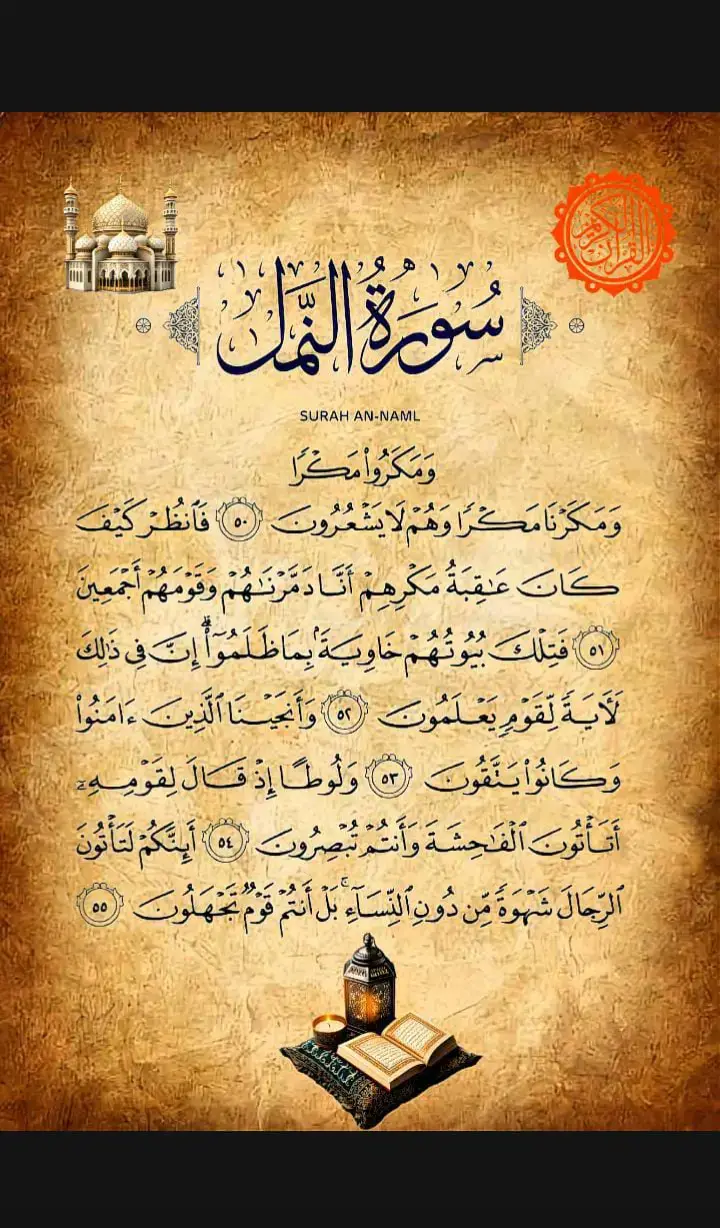 القرآن الكريم
سُورَةُ النَّمل
SURAH AN-NAML
وَمَكَرُوا۟ مَكْرًا
وَمَكَرْنَا مَكْرًا وَهُمْ لَا يَشْعُرُونَ ٥٠ فَٱنظُرْ كَيْفَ
كَانَ عَـٰقِبَةُ مَكْرِهِمْ أَنَّا دَمَّرْنَـٰهُمْ وَقَوْمَهُمْ أَجْمَعِينَ
٥١ فَتِلْكَ بُيُوتُهُمْ خَاوِيَةًۢ بِمَا ظَلَمُوٓا۟ ۗ إِنَّ فِى ذَٰلِكَ
لَـَٔايَةً لِّقَوْمٍ يَعْلَمُونَ ٥٢ وَأَنجَيْنَا ٱلَّذِينَ ءَامَنُوا۟
وَكَانُوا۟ يَتَّقُونَ ٥٣ وَلُوطًا إِذْ قَالَ لِقَوْمِهِۦٓ
أَتَأْتُونَ ٱلْفَـٰحِشَةَ وَأَنتُمْ تُبْصِرُونَ ٥٤ أَئِنَّكُمْ لَتَأْتُونَ
ٱلرِّجَالَ شَهْوَةً مِّن دُونِ ٱلنِّسَآءِ ۚ بَلْ أَنتُمْ قَوْمٌ تَجْهَلُونَ ٥٥